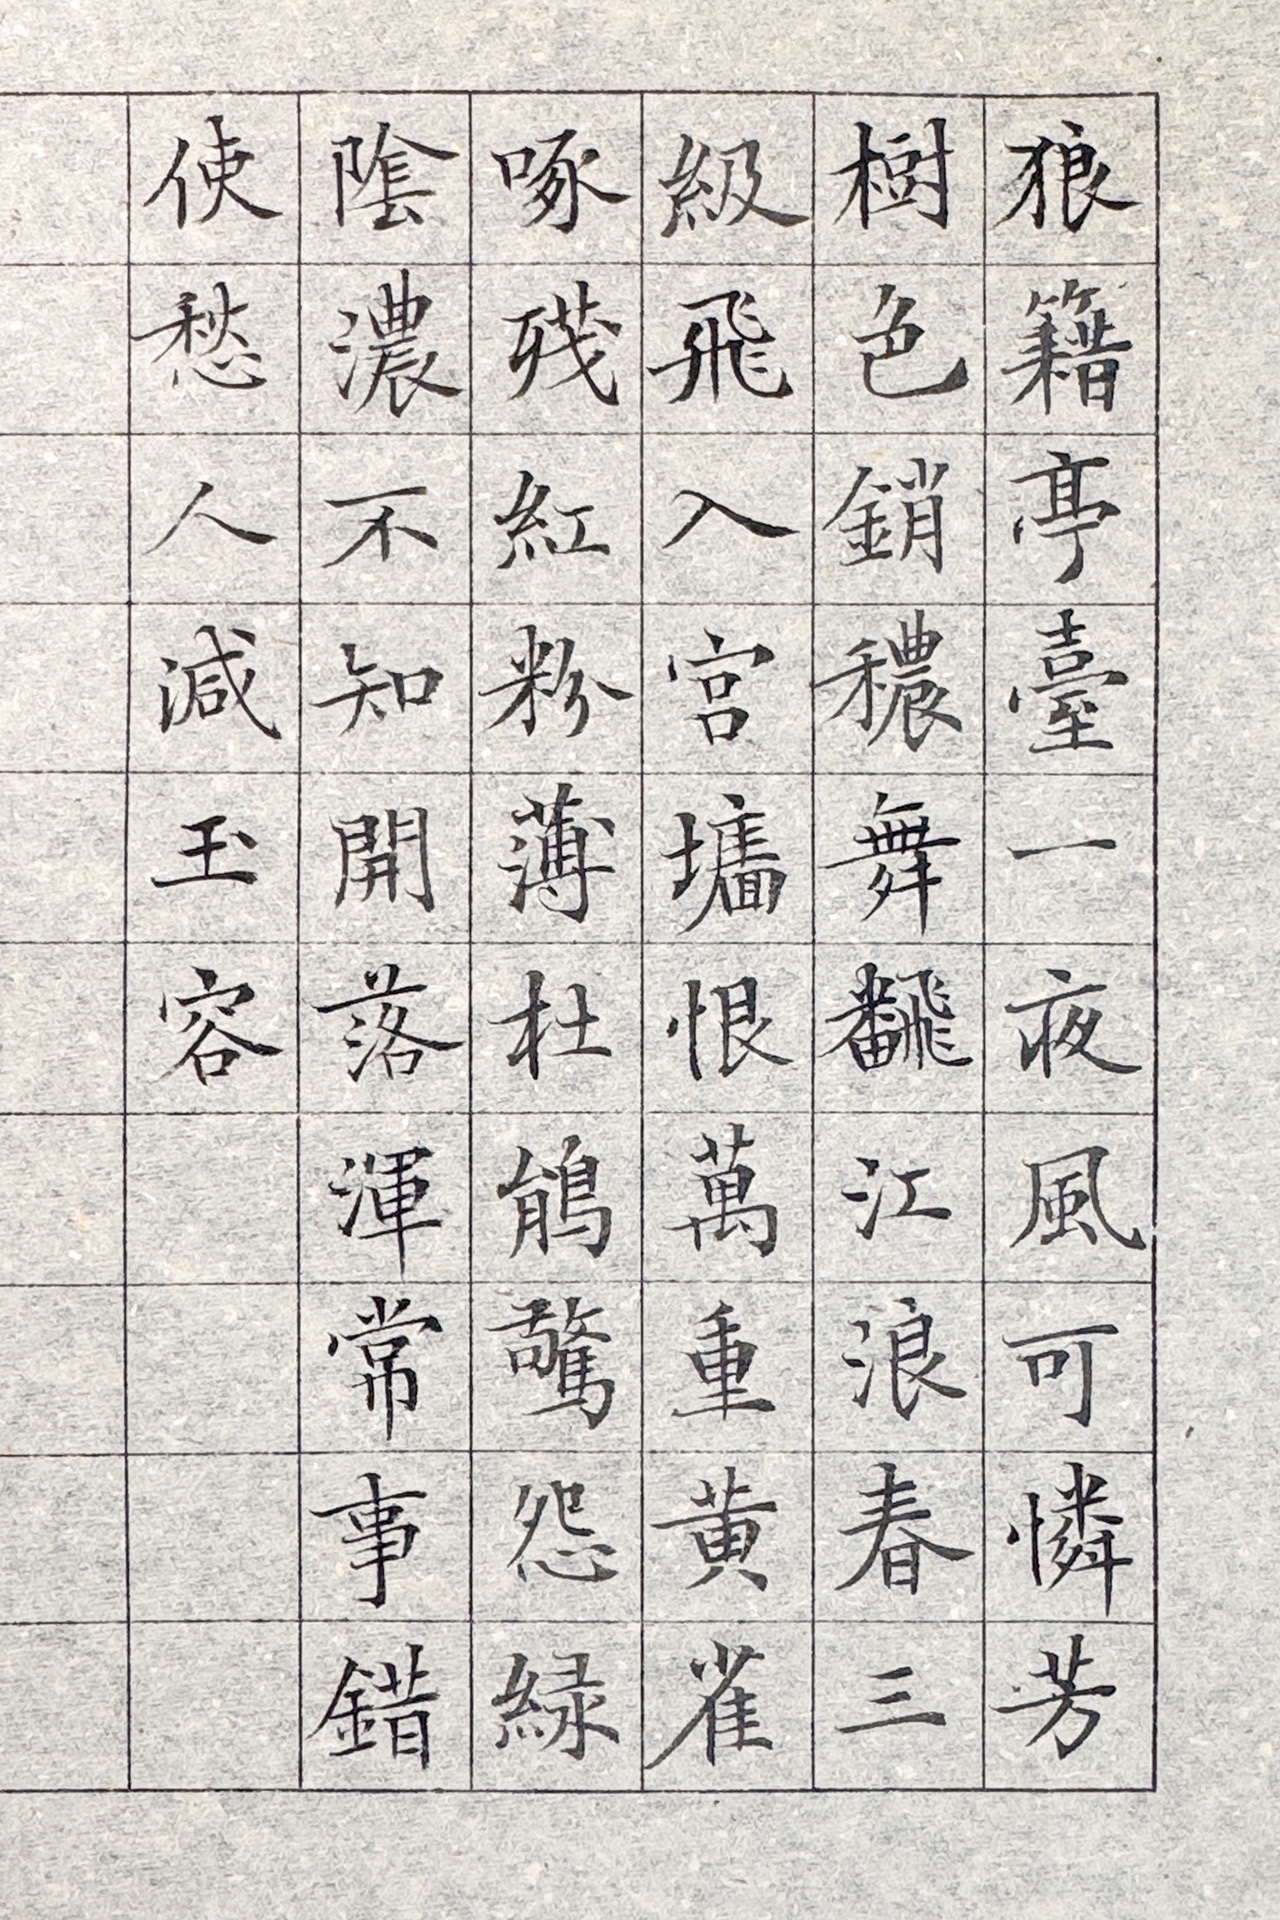 狼籍亭臺一夜風可憐芳
樹色銷穠舞飜江浪春三
級飛入宮墻恨萬重黃雀
啄殘紅粉薄杜鵑驚怨緑
陰濃不知開落渾常事錯
使愁人減玉容